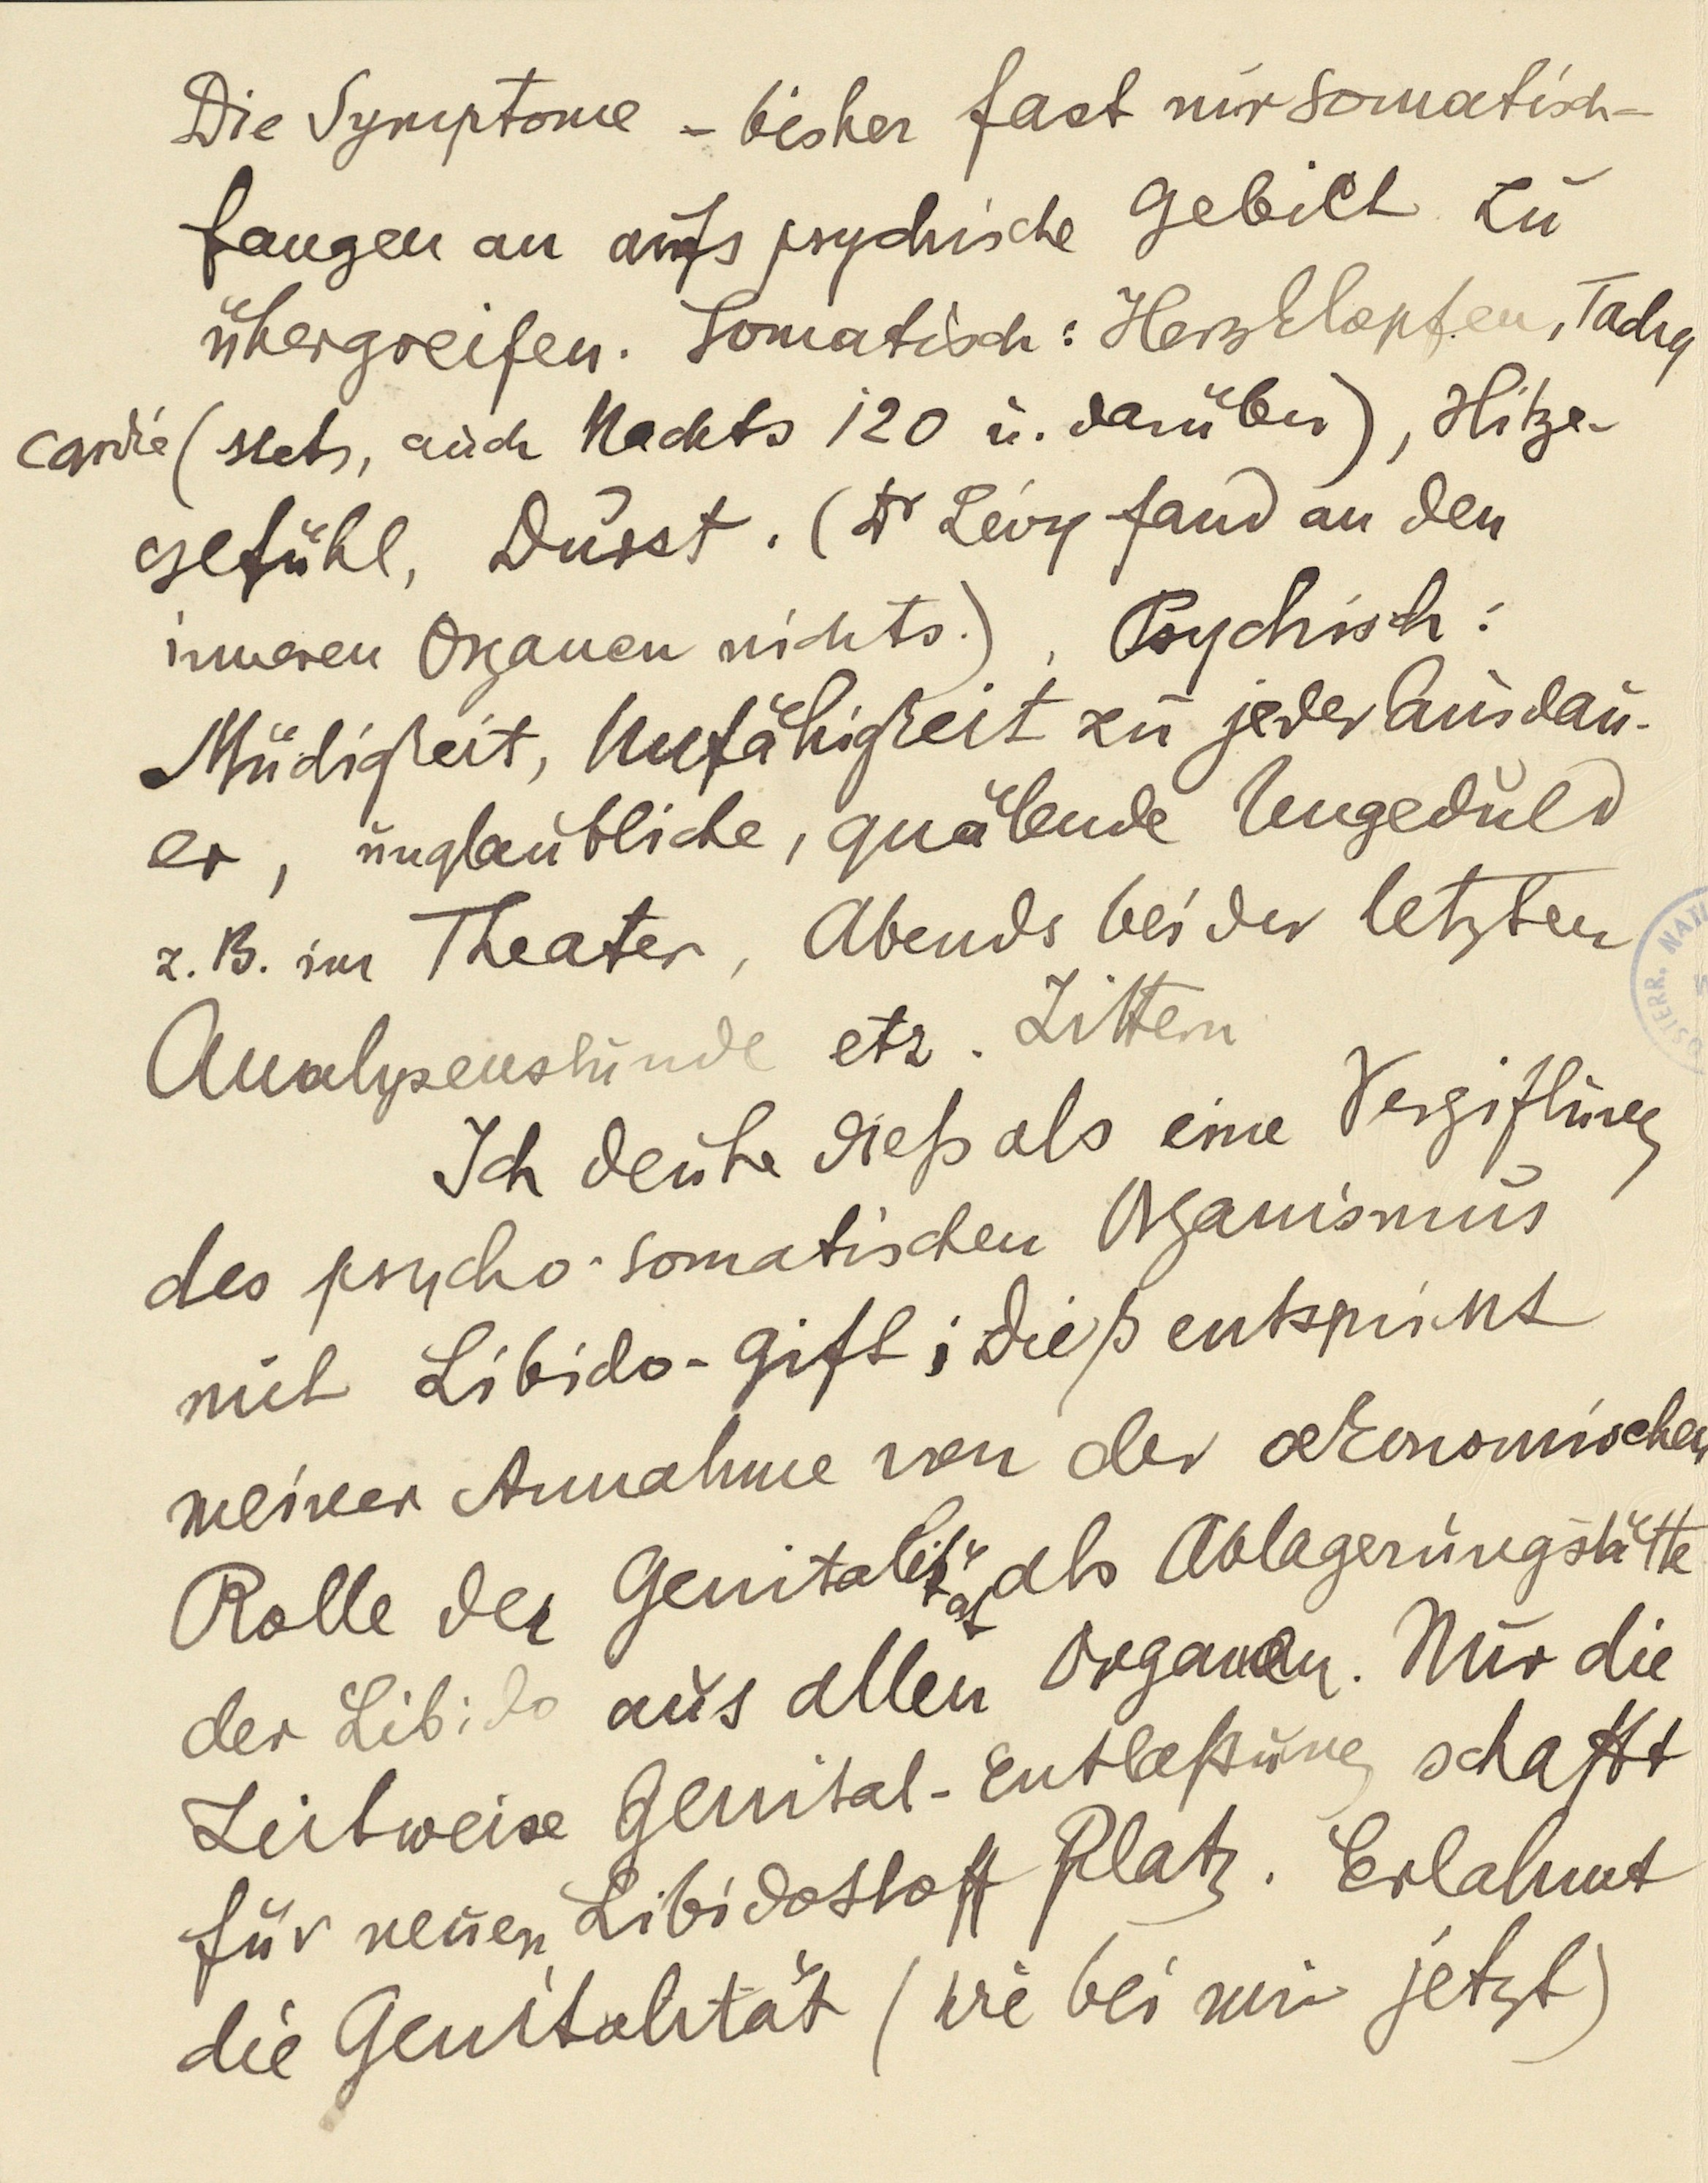 Die Symptome – bisher fast nur somatisch –
fangen an aufs psychische Gebiet zu
übergreifen. Somatisch: Herzklopfen, Tachy
cardie (stets, auch Nachts 120 u. darüber), Hitze-
gefühl, Durst. (Dr Lévy fand an den
inneren Organen nichts.), Psychisch:
Müdigkeit, Unfähigkeit zu jeder Ausdau-
er, unglaubliche, quälende Ungeduld
z. B. im Theater, Abends bei der letzten
Analysenstunde etz. Zittern
Ich deute dieß als eine Vergiftung
des psycho-somatischen Organismus
mit Libido-Gift; dieß entspricht
meiner Annahme von der oekonomischen
Rolle der Genitalität als Ablagerungsstätte
der Libido aus allen Organen. Nur die
Zeitweise Genital-Entlaßung schafft
für neuen Libidostoff Platz. Erlahmt
die Genitalität (wie bei mir jetzt)
ÖSTERR. NATI